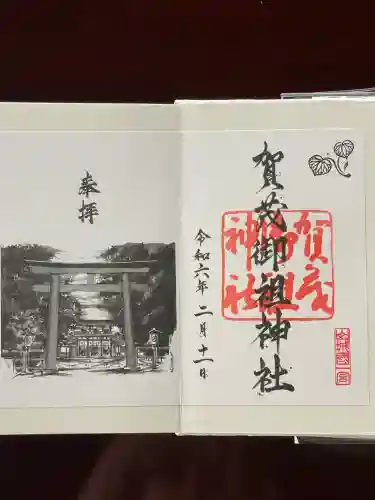 奉拝
賀茂御祖神社
令和六年二月十一日
賀茂
御祖
神社
山城國一宮